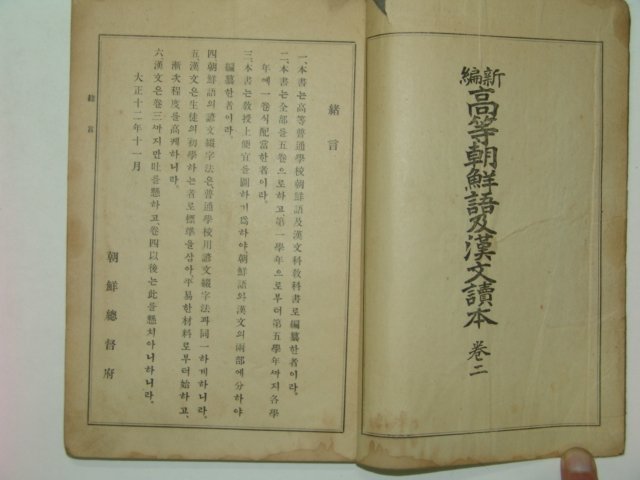 新編
高等朝鮮語及漢文讀本 卷二
緖言
一、本書는高等普通學校朝鮮語及漢文科敎科書로編纂한者이라。
二、本書는全部를五卷으로하고、第一學年으로부터第五學年까지各學
年에一卷식配當한者이라。
三、本書는敎授上便宜를圖하기爲하야朝鮮語와漢文의兩部에分하야
編纂한者이라。
四、朝鮮語의諺文綴字法은、普通學校用諺文綴字法과同一하게하니라。
五、漢文은生徒의初學하는者로標準을삼아、平易한材料로부터始하고、
漸次程度를高케하니라。
六、漢文은卷三까지만吐를懸하고卷四以後는此를懸치아니하니라。
大正十二年十一月
朝鮮總督府
緖言